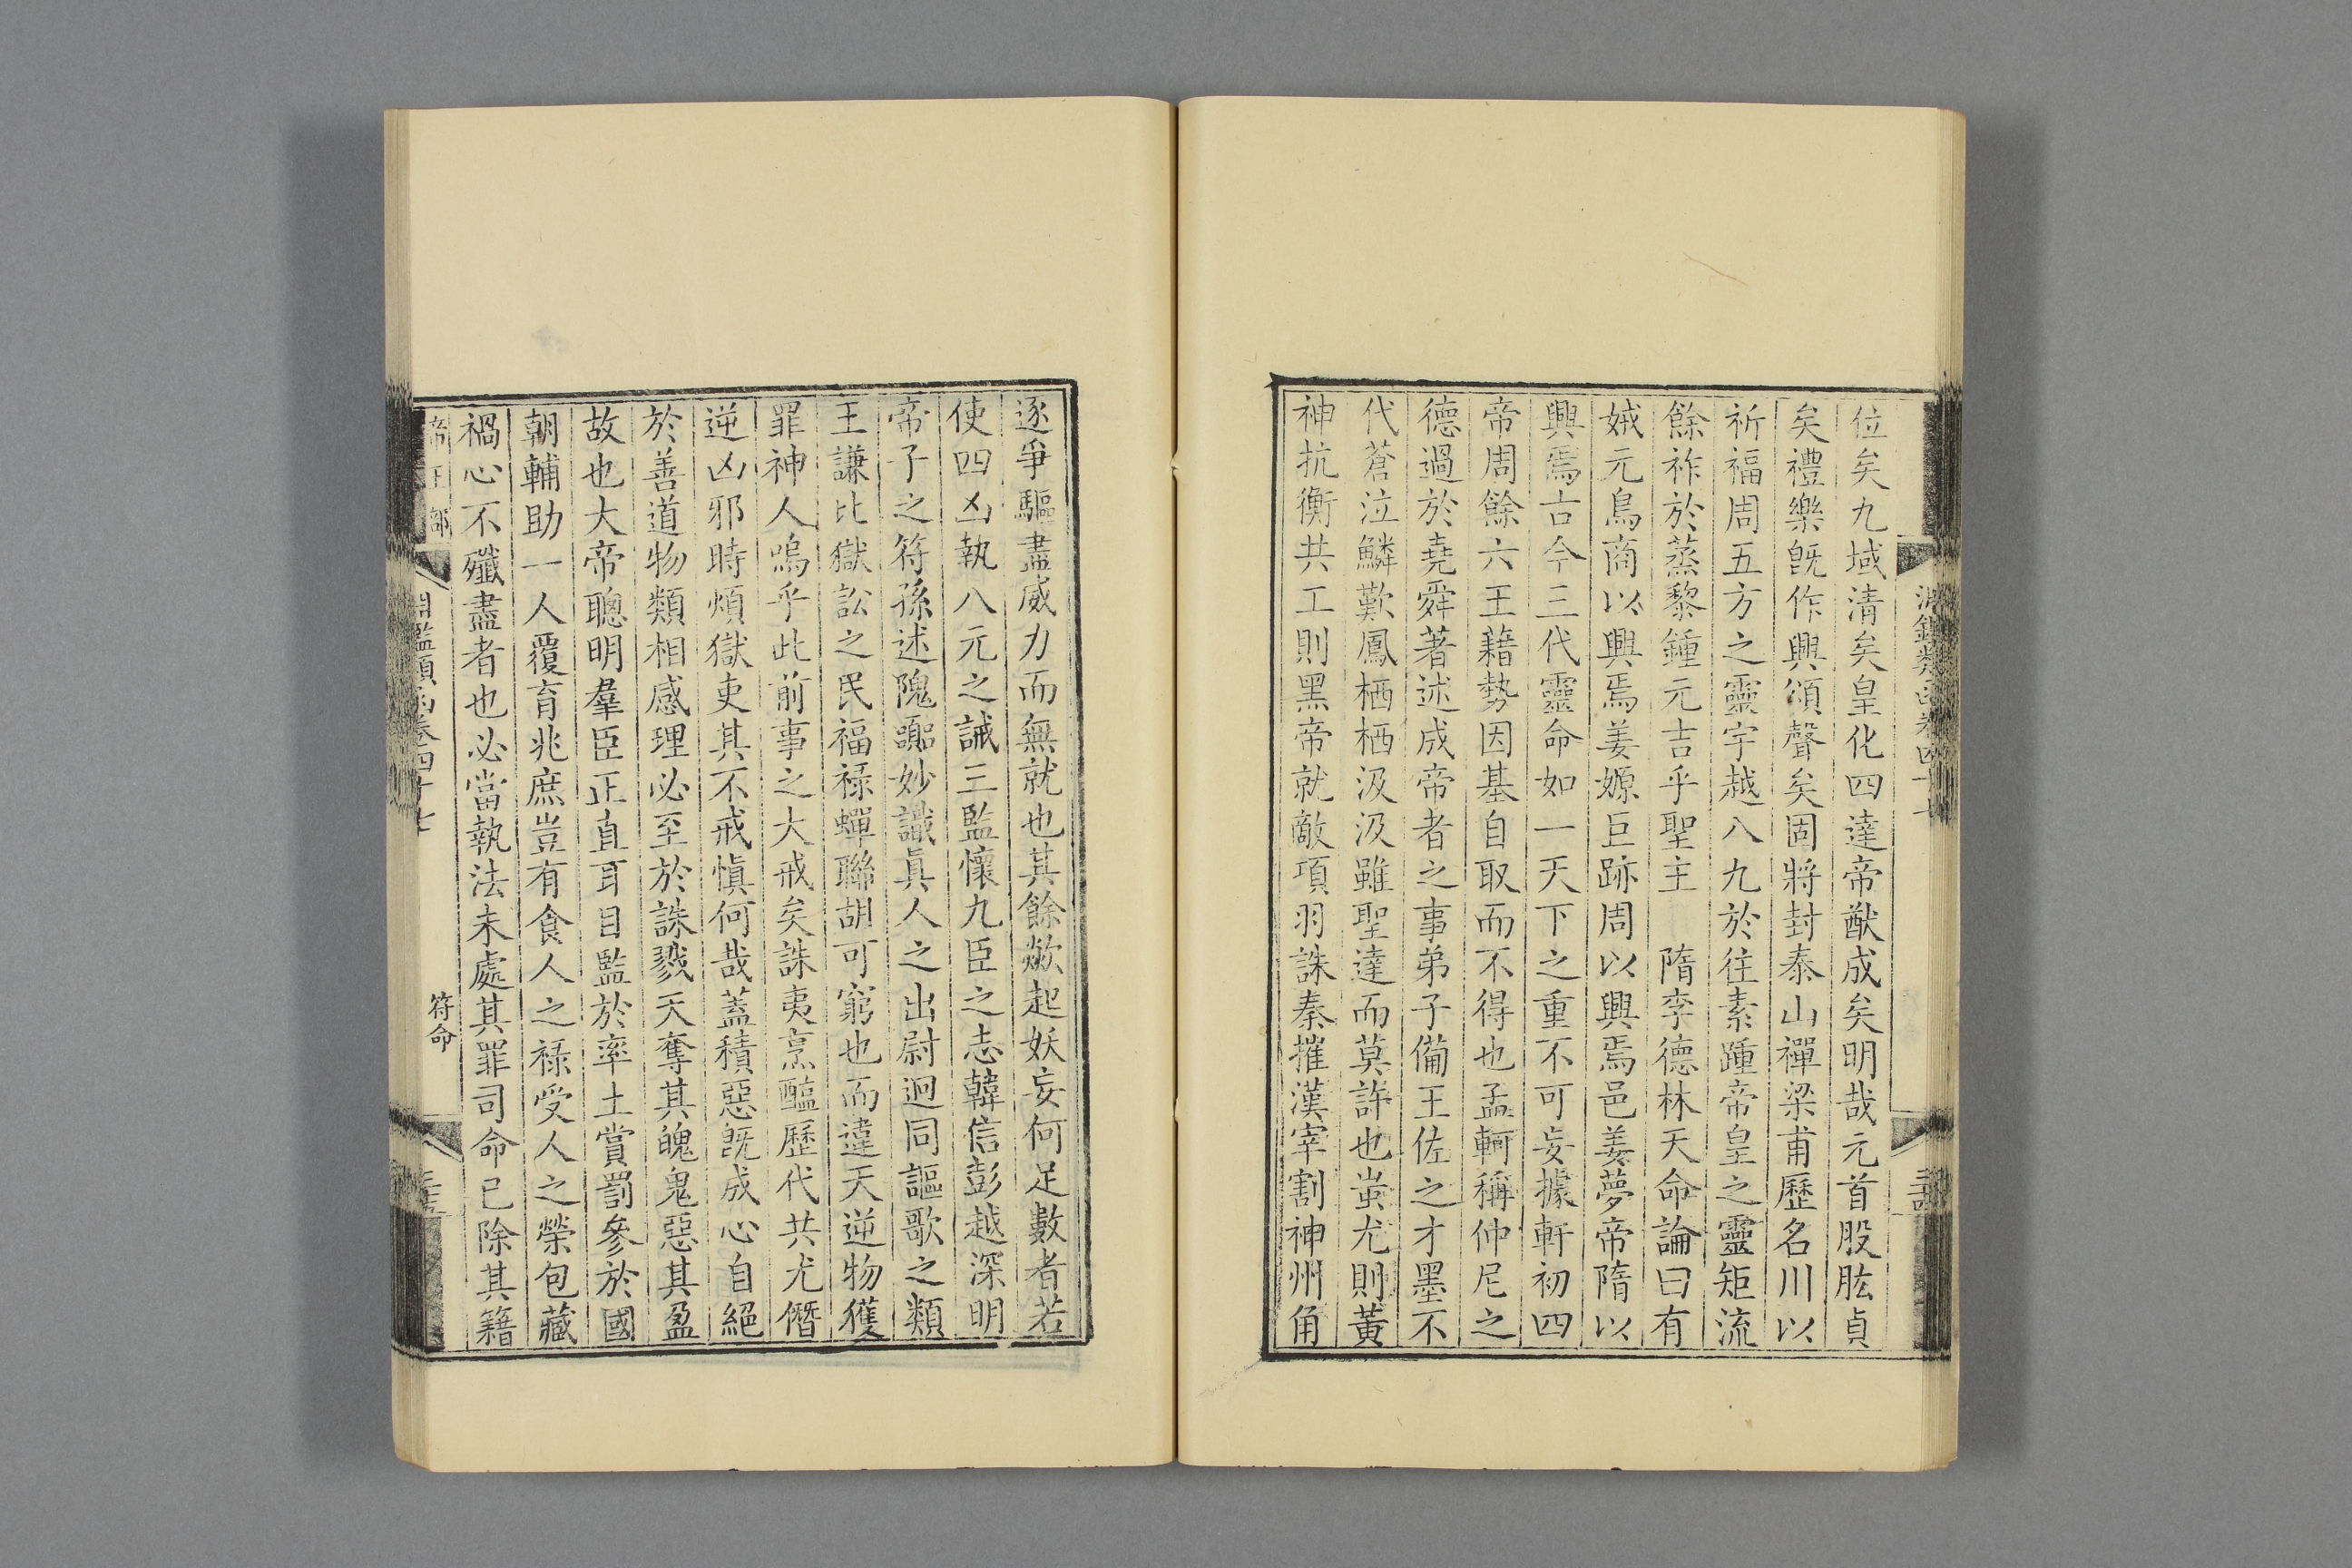 淵鑑類函卷四十七
位矣九域清矣皇化四達帝猷成矣明哉元首股肱貞
矣禮樂旣作興頌聲矣固將封泰山禪梁甫歷名川以
祈福周五方之靈宇越八九於往素踵帝皇之靈矩流
餘祚於蒸黎鍾元吉乎聖主　隋李德林天命論曰有
娀元鳥商以興焉姜嫄巨跡周以興焉邑姜夢帝隋以
興焉古今三代靈命如一天下之重不可妄據軒初四
帝周餘六王藉勢因基自取而不得也孟軻稱仲尼之
德過於堯舜著述成帝者之事弟子備王佐之才墨不
代蒼泣鱗歎鳳栖栖汲汲雖聖達而莫許也蚩尤則黃
神抗衡共工則黑帝就敵項羽誅秦摧漢宰割神州角
逐爭驅盡威力而無就也其餘歘起妖妄何足數者若
使四凶執八元之誠三監懷九臣之志韓信彭越深明
帝子之符孫述隗囂妙識眞人之出尉迥同謳歌之類
王謙比獄訟之民福祿蟬聯胡可窮也而違天逆物獲
罪神人嗚乎此前事之大戒矣誅夷烹醢歷代共尤僭
逆凶邪時煩獄吏其不戒愼何哉蓋積惡旣成心自絕
於善道物類相感理必至於誅戮天奪其魄鬼惡其盈
故也大帝聰明羣臣正直耳目監於率土賞罰參於國
朝輔助一人覆育兆庶豈有食人之祿受人之榮包藏
禍心不殲盡者也必當執法未處其罪司命已除其籍
帝王部
淵鑑類函卷四十七
符命